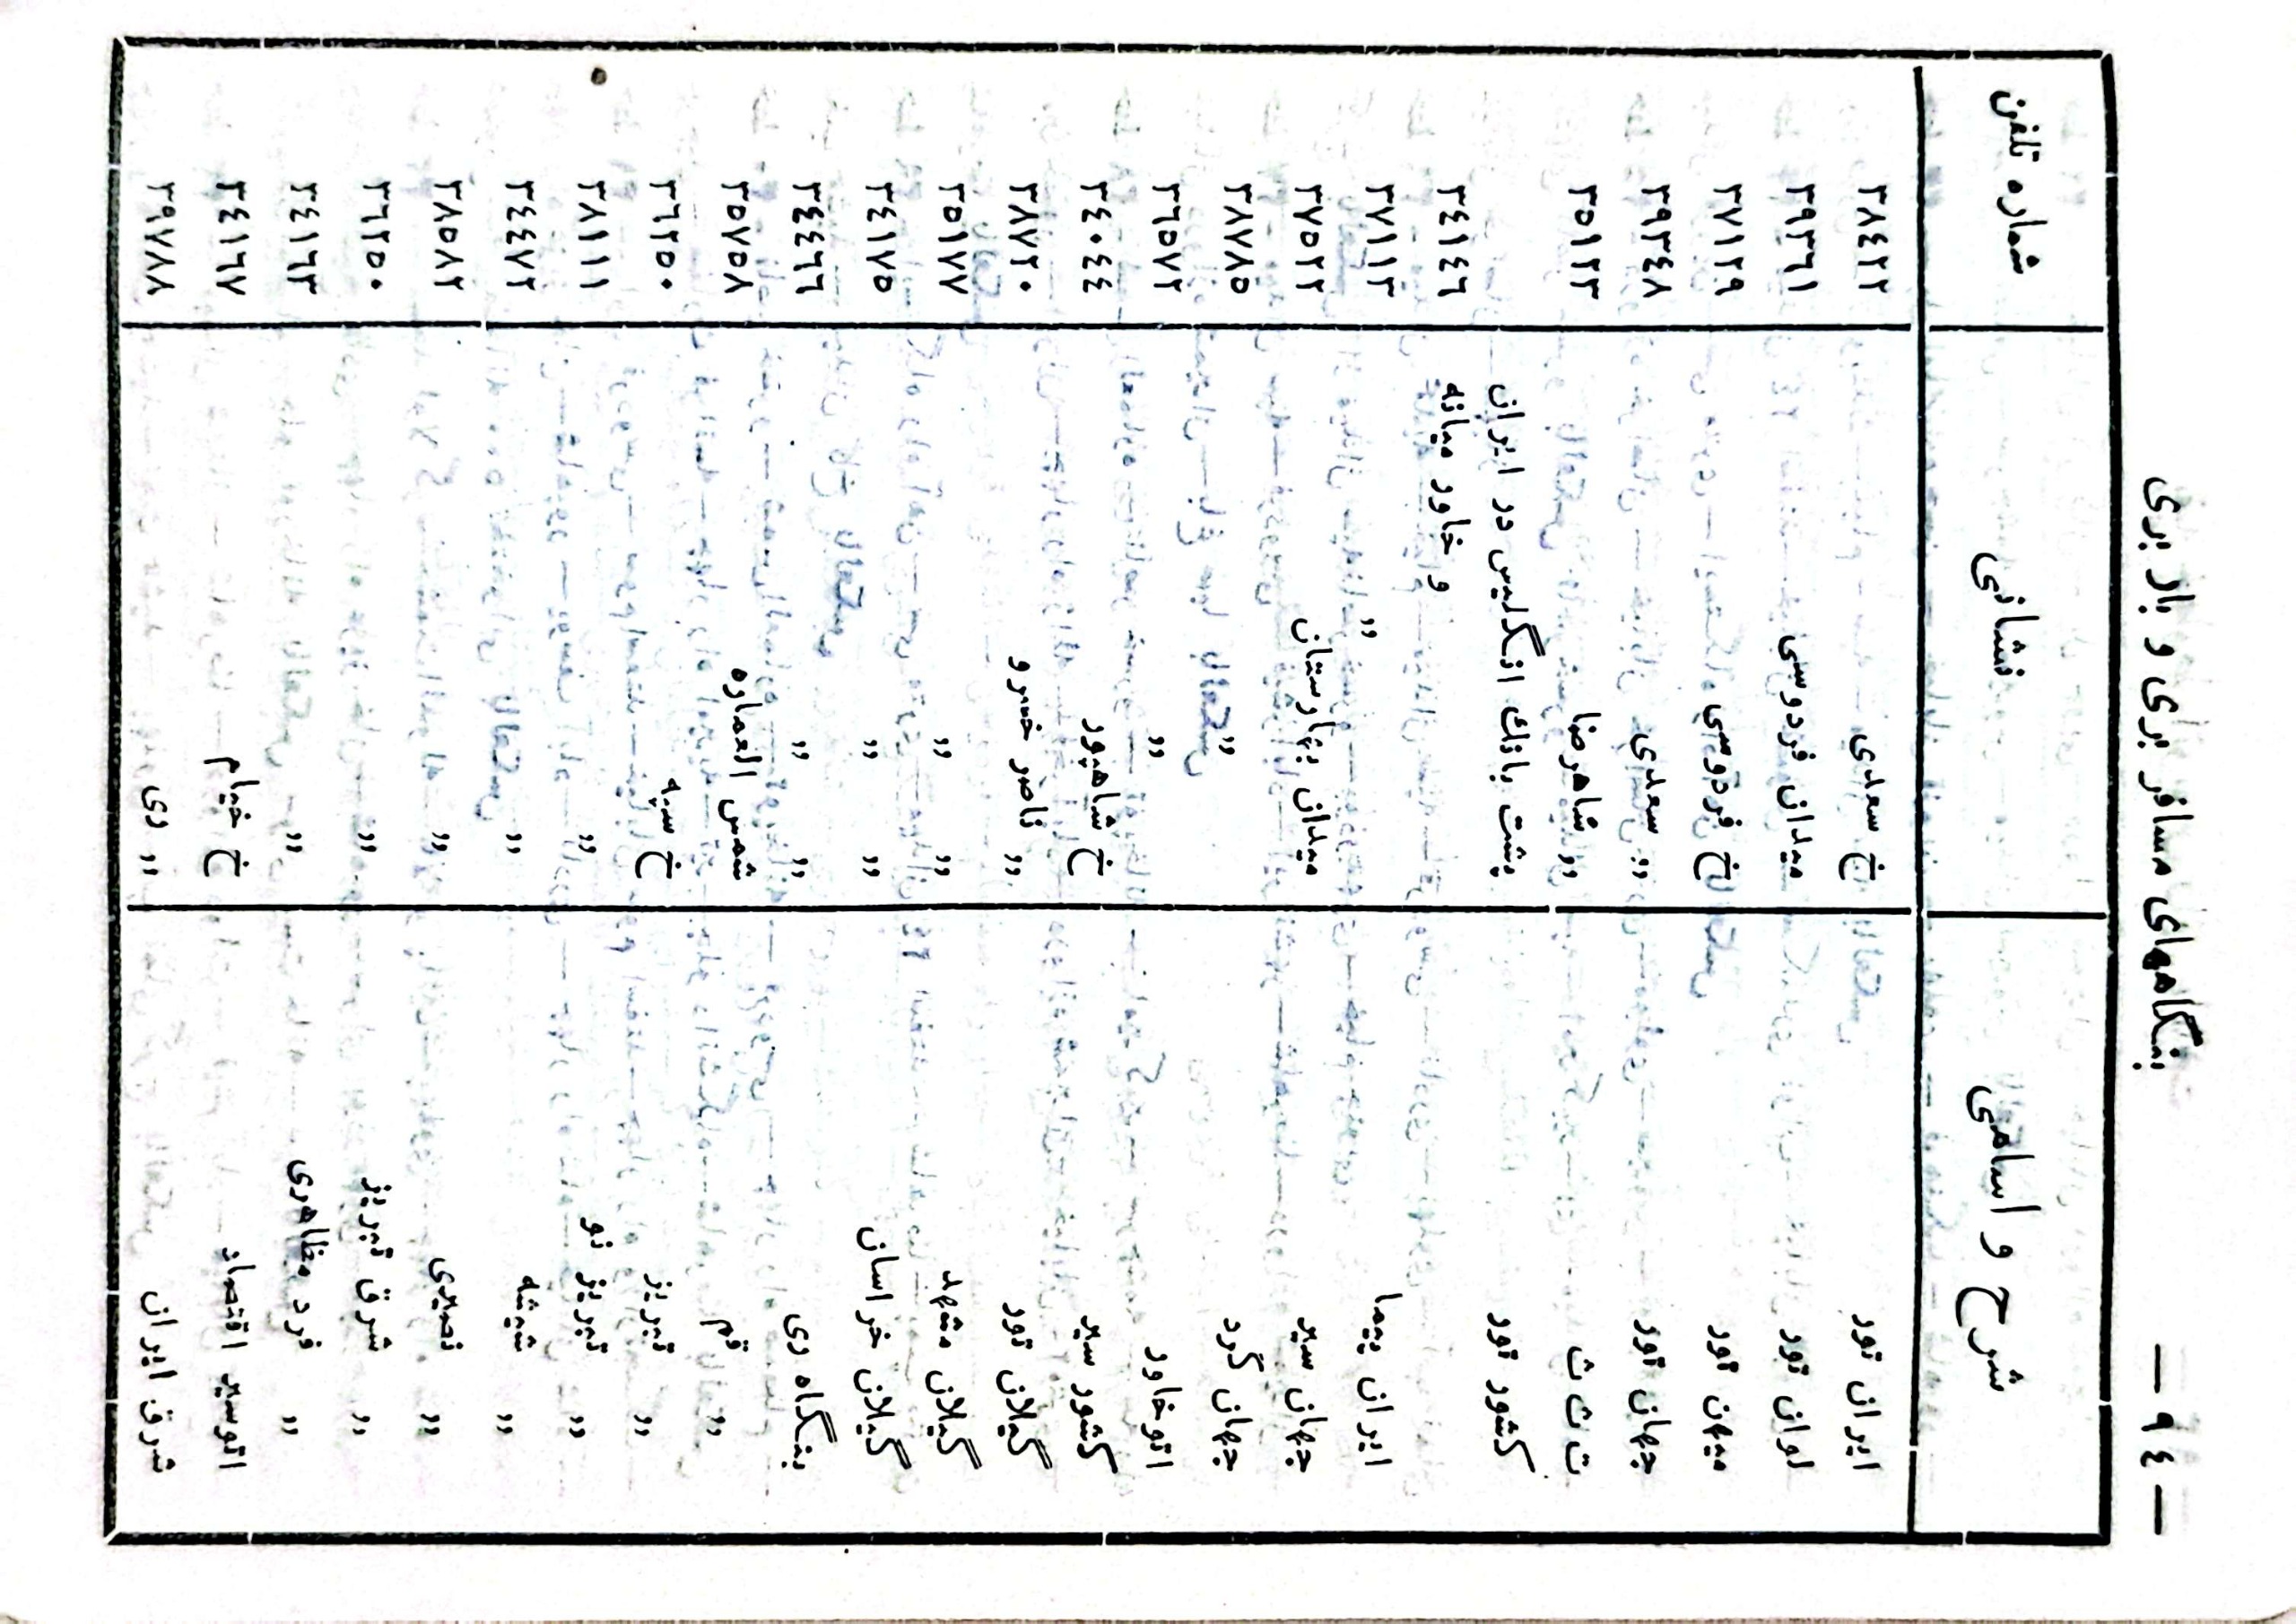 — ٩٤ —
بنگاههای مسافر بری و بار بری
شرح و اسامی نشانی شماره تلفن
ایران تور خ سعدی ٣٨٤٢٢
لوان تور میدان فردوسی ٣٩٣٦١
میهن تور خ فردوسی ٣٧١٢٩
جهان تور ,, سعدی ٣٩٣٤٨
ت ث ث ,, شاهرضا ٣٥١٢٣
کشور تور پشت بانك انگلیس در ایران
و خاور میانه ٣٤١٤٦
ایران پیما ,, ٣٧١١٣
جهان سیر میدان بهارستان ٣٧٥٢٢
جهان گرد ,, ٣٨٧٨٥
اتوخاور ,, ٣٦٥٧٢
کشور سیر خ شاهپور ٣٤٠٤٤
گیلان تور ,, ناصر خسرو ٣٨٧٢٠
گیلان مشهد ,, ,, ٣٥١٧٧
گیلان خراسان ,, ,, ٣٤١٧٥
بنگاه ری ,, ,, ٣٤٤٦٦
,, قم شمس العماره ٣٥٧٥٨
,, تبریز خ سپه ٣٦٢٥٠
,, تبریز نو ,, ٣٨١١١
,, شیشه ,, ٣٤٤٧٢
,, نصیری ,, ٣٨٥٨٢
,, شرق تبریز ,, ٣٦٢٥٠
,, فرد مظاهری ,, ٣٤١٦٣
اتوسیر اقتصاد خ خیام ٣٤١٦٧
شرق ایران ,, ری ٣٩٧٨٨